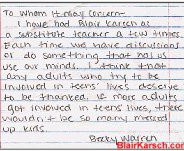 To Whom it may concern-
I have had Blair Karsch as
a substitute teacher a few times.
Each time we have discussions
or do something that has us
use our minds. I think that
any adults who try to be
involved in teens' lives deserve
to be thanked. If more adults
got involved in teens' lives, there
wouldn't be so many messed
up kids.
Becky Warren
BlairKarsch.com